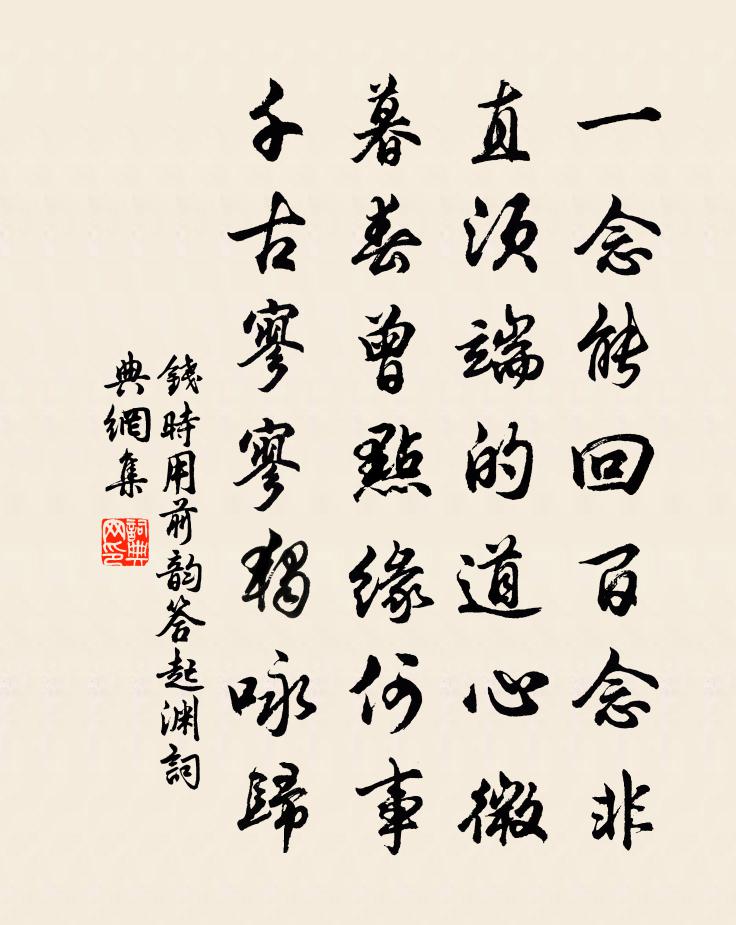 一念能回百念非
直須端的道心微
暮春曾點緣何事
千古寥寥獨咏歸
錢時用前韵答起渊詞
典網集
詞典網印